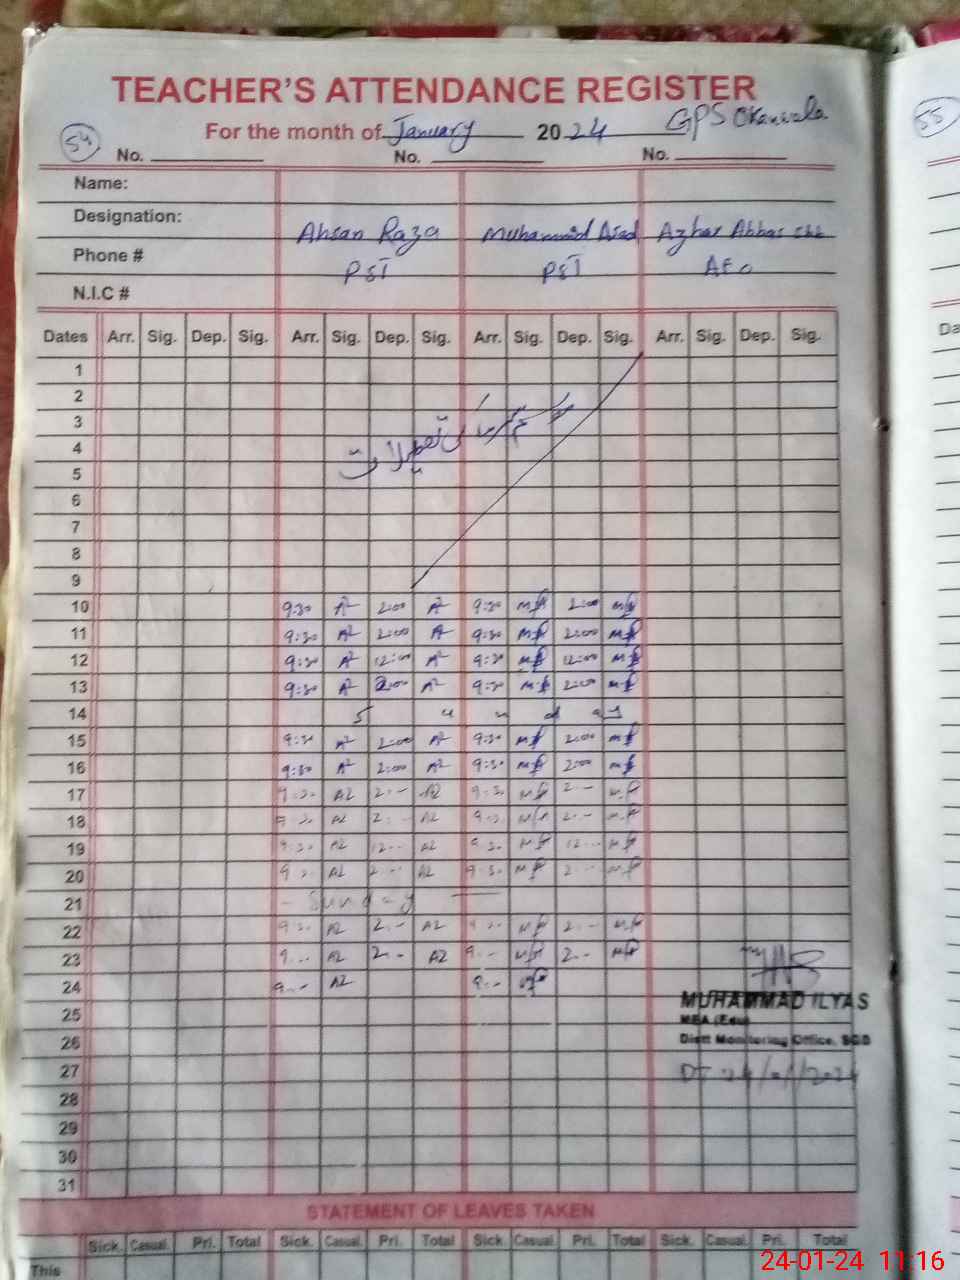 TEACHER'S ATTENDANCE REGISTER
For the month of January 2024 GPS Okanwala
54
55
No. No. No.
Name:
Designation:
Ahsan Raza Muhammad Asad Azhar Abbas
Phone #
PST PST AEO
N.I.C #
Dates Arr. Sig. Dep. Sig. Arr. Sig. Dep. Sig. Arr. Sig. Dep. Sig. Arr. Sig. Dep. Sig.
1
2
3
موسم سرما کی تعطیلات
4
5
6
7
8
9
10 9:30 AR 2:00 AR 9:30 2:00
11 9:30 AR 2:00 AR 9:30 2:00
12 9:30 AR 12:00 AR 9:30 12:00
13 9:30 AR 2:00 AR 9:30 2:00
14 S u n d ay
15 9:30 AR 2:00 AR 9:30 2:00
16 9:30 AR 2:00 AR 9:30 2:00
17 9:30 AR 2:-- AR 9:30 2:--
18 9:30 AR 2:-- AR 9:30 2:--
19 9:30 AR 12:-- AR 9:30 12:--
20 9:30 AR 2:-- AR 9:30 2:--
21 - Sunday
22 9:30 AR 2:-- AR 9:30 2:--
23 9:-- AR 2:-- AR 9:-- 2:--
24 9:-- AR 9:--
MUHAMMAD ILYAS
25
MEA (Edu)
26
Distt Monitoring Office, SGD
27
DT 24/01/2024
28
29
30
31
STATEMENT OF LEAVES TAKEN
Sick. Casual. Pri. Total Sick. Casual. Pri. Total Sick. Casual. Pri. Total Sick. Casual. Pri. Total
This
24-01-24 11:16